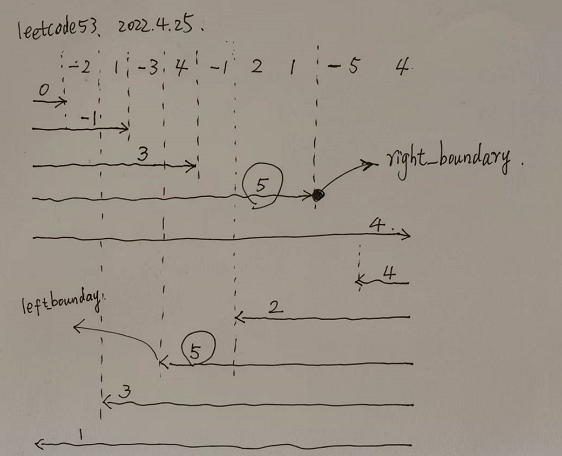 leetcode53、2022.4.25.
-2 1 -3 4 -1 2 1 -5 4
0
-1
3
right_boundary.
5
4.
4
left_bounday.
2
5
3
1